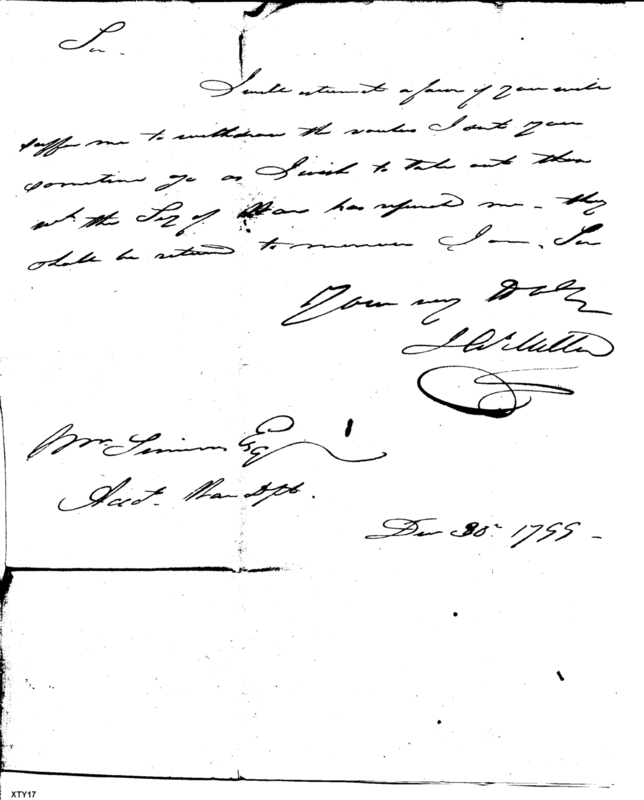 Sir.
I will esteem it a favor if you will
suffer me to withdraw the vouchers I sent you
sometime ago as I wish to take out those
wh. the Sey of War has refused me - they
shall be returned to morrow I am, Sir
Your very Hble
Wm. Simmons Esq
Acct. War Dpt.
Decr 30th 1799 -
XTY17